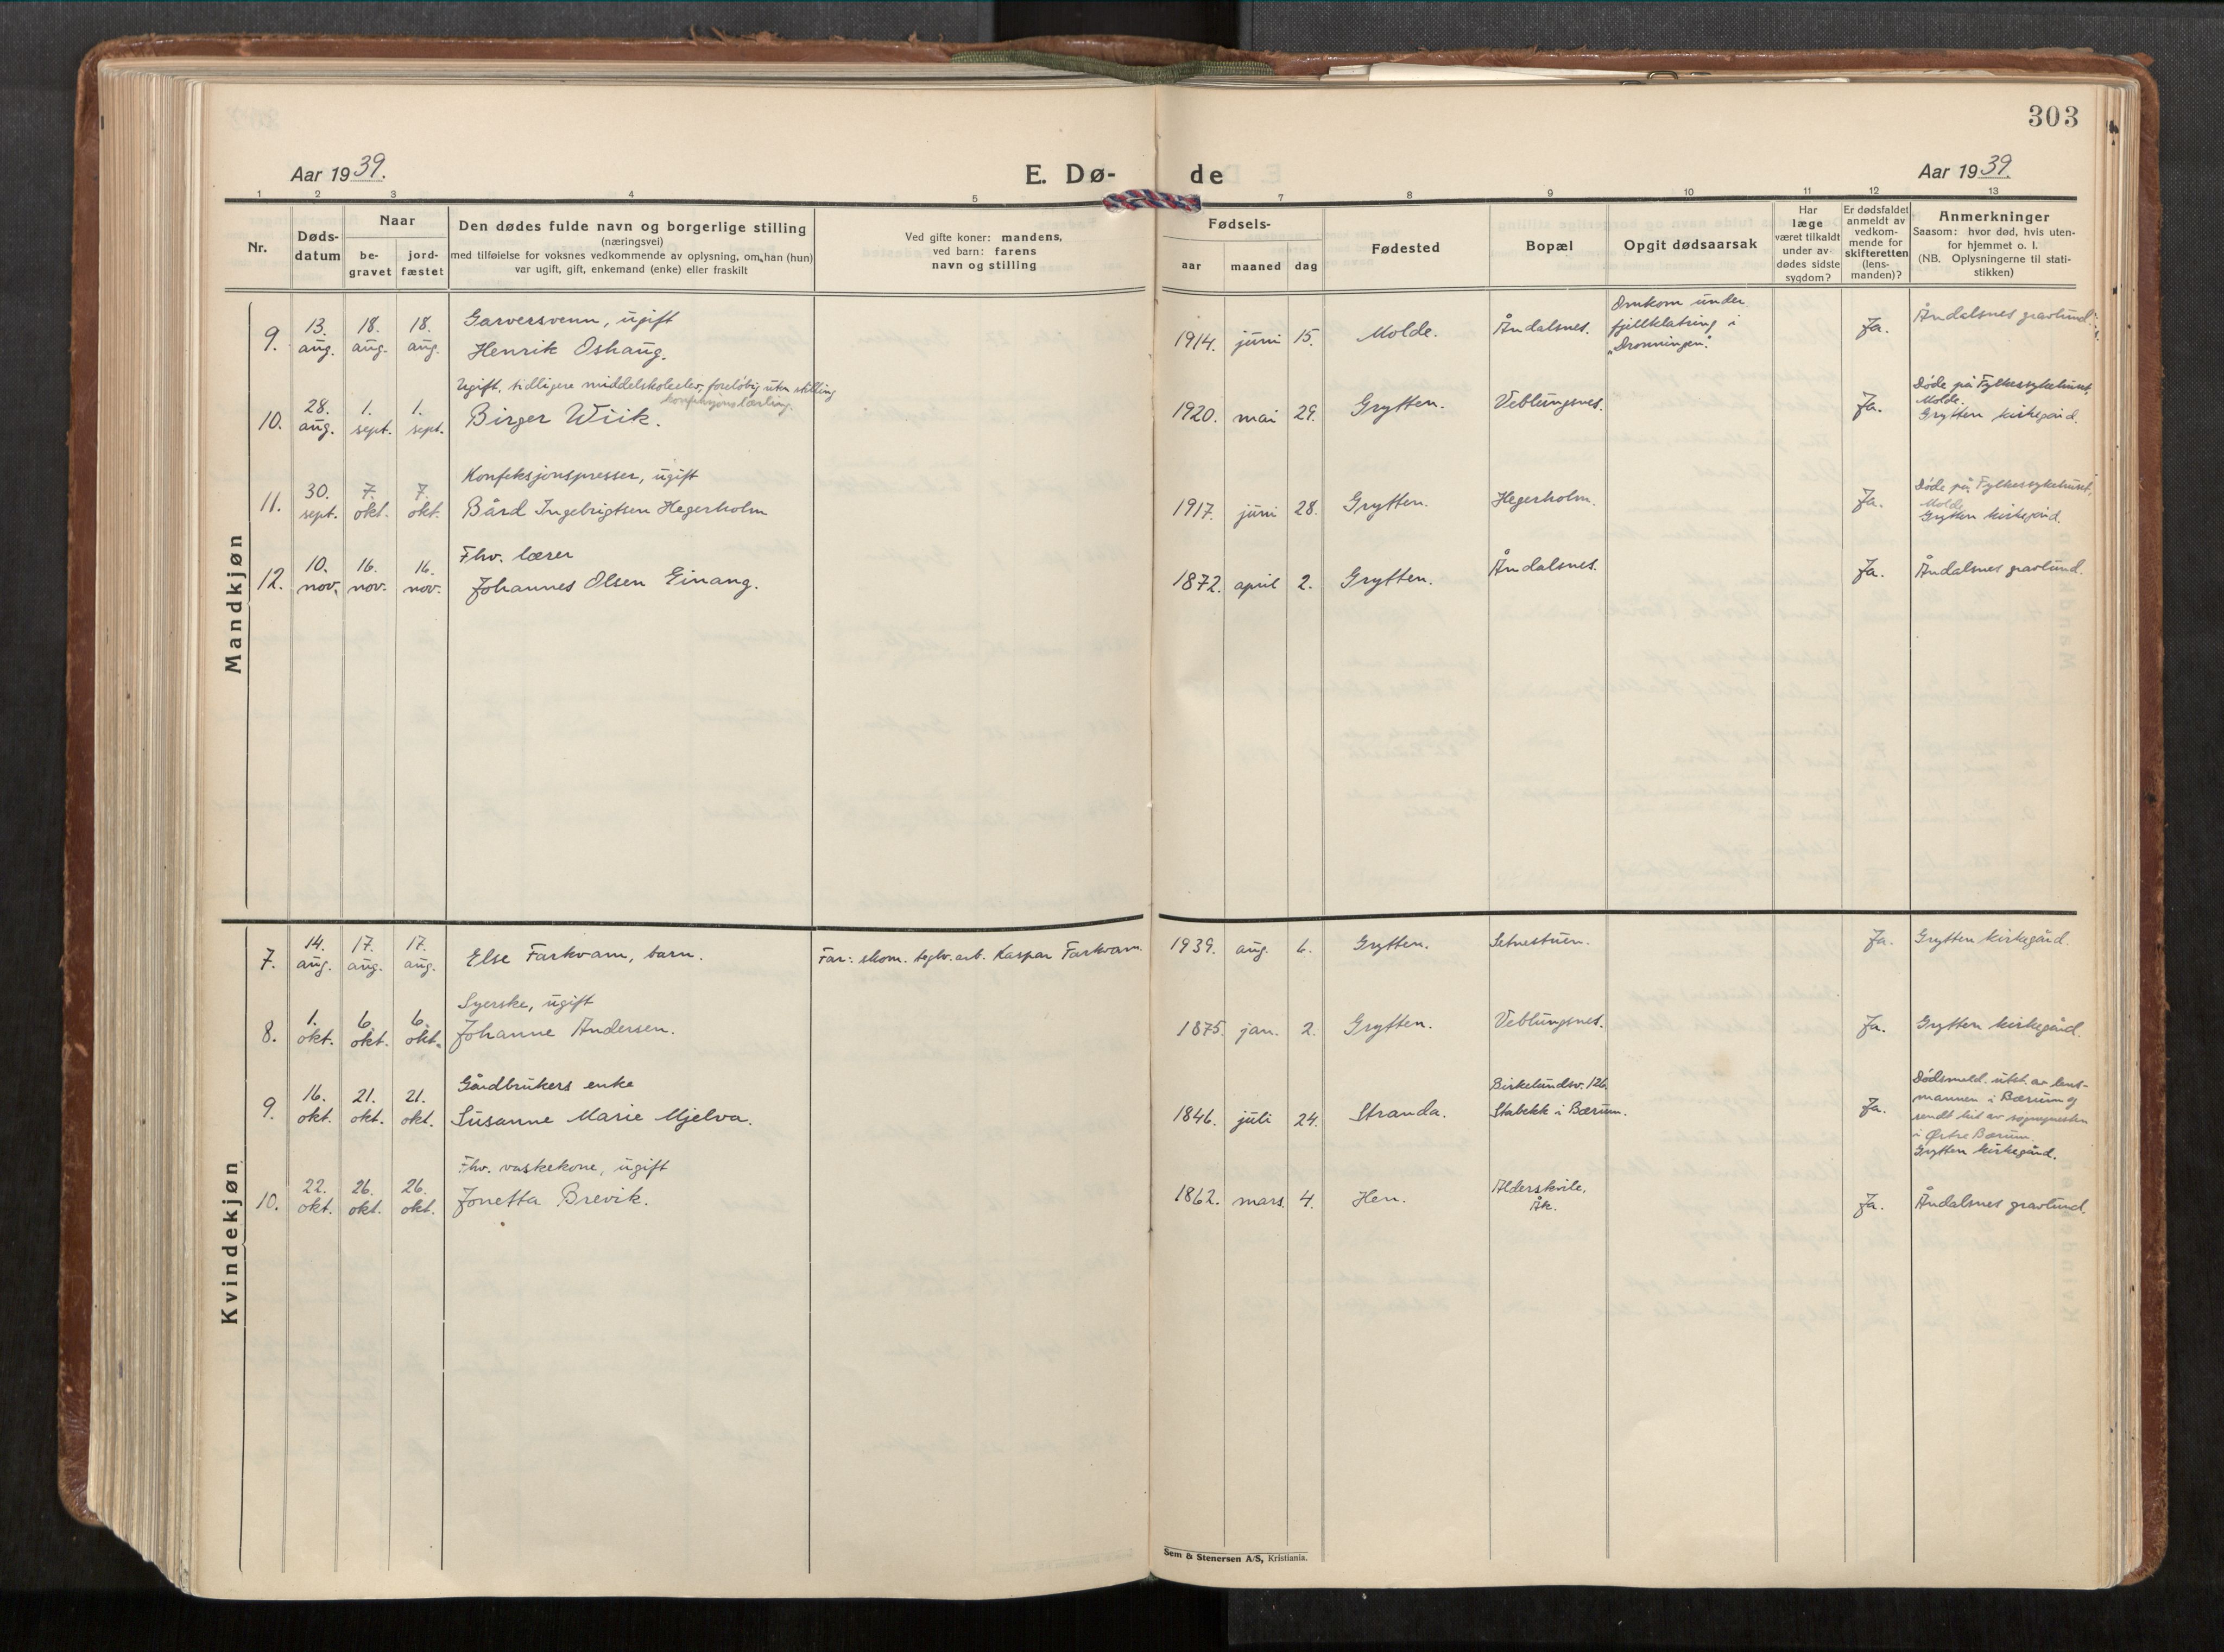 303
Aar 1939.
E. Dø-
de
Aar 1939.
1 2 3 4 5 7 8 9 10 11 12 13
Nr.
Døds-
datum
Naar
be-
gravet
jord-
fæstet
Den dødes fulde navn og borgerlige stilling
(næringsvei)
med tilføielse for voksnes vedkommende av oplysning, om han (hun)
var ugift, gift, enkemand (enke) eller fraskilt
Ved gifte koner: mandens,
ved barn: farens
navn og stilling
Fødsels-
aar maaned dag
Fødested
Bopæl
Opgit dødsaarsak
Har
læge
været tilkaldt
under av-
dødes sidste
sygdom?
Er dødsfaldet
anmeldt av
vedkom-
mende for
skifteretten
(lens-
manden)?
Anmerkninger
Saasom: hvor død, hvis uten-
for hjemmet o. l.
(NB. Oplysningerne til stati-
stikken)
Mandkjøn
9.
13.
aug.
18.
aug.
18.
aug.
Garversvenn, ugift
Henrik Oshaug.
1914. juni 15.
Molde.
Åndalsnes.
Omkom under
fjellklatring i
"Dronningen".
Ja.
Åndalsnes gravlund.
10.
28.
aug.
1.
sept.
1.
sept.
Ugift, tidligere middelskoleelev, foreløbig uten stilling
konfeksjonslærling.
Birger Wiik.
1920. mai 29.
Grytten.
Veblungsnes.
Ja.
Døde på Fylkessykehuset,
Molde.
Grytten kirkegård.
11.
30.
sept.
7.
okt.
7.
okt.
Konfeksjonspresser, ugift
Bård Ingebrigtsen Hegerholm
1917. juni 28.
Grytten.
Hegerholm.
Ja.
Døde på Fylkessykehuset,
Molde
Grytten kirkegård.
12.
10.
nov.
16.
nov.
16.
nov.
Fhv. lærer
Johannes Olsen Einang.
1872. april 2.
Grytten.
Åndalsnes.
Ja.
Åndalsnes gravlund.
Kvindekjøn
7.
14.
aug.
17.
aug.
17.
aug.
Else Farkvam, barn.
Far: skom. Kaspar Farkvam.
1939. aug. 6.
Grytten.
Setnestuen.
Ja.
Grytten kirkegård.
8.
1.
okt.
6.
okt.
6.
okt.
Syerske, ugift
Johanne Andersen.
1875. jan. 2.
Grytten.
Veblungsnes.
Ja.
Grytten kirkegård.
9.
16.
okt.
21.
okt.
21.
okt.
Gårdbrukers enke
Susanne Marie Mjelva.
1846. juli 24.
Stranda.
Birkelundsv. 126.
Stabekk i Bærum.
Ja.
Dødsmeld. utst. av lens-
mannen i Bærum og
sendt hit av sognepresten
i Østre Bærum.
Grytten kirkegård.
10.
22.
okt.
26.
okt.
26.
okt.
Fhv. vaskekone, ugift
Jonetta Brevik.
1862. mars 4.
Hen.
Alderskvile,
Åk.
Ja.
Åndalsnes gravlund.
Sem & Stenersen A/S, Kristiania.